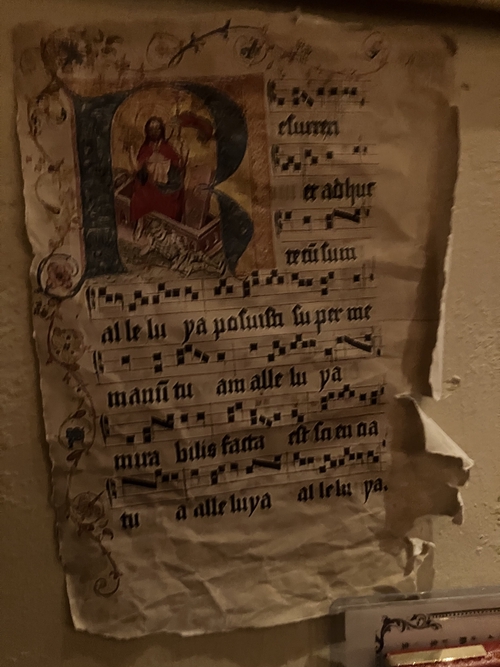 Resurrexi
et adhuc
tecū sum
al le lu ya posuisti su per me
manū tu am alle lu ya
mira bilis facta est sci en cia
tu a alleluya al le lu ya.